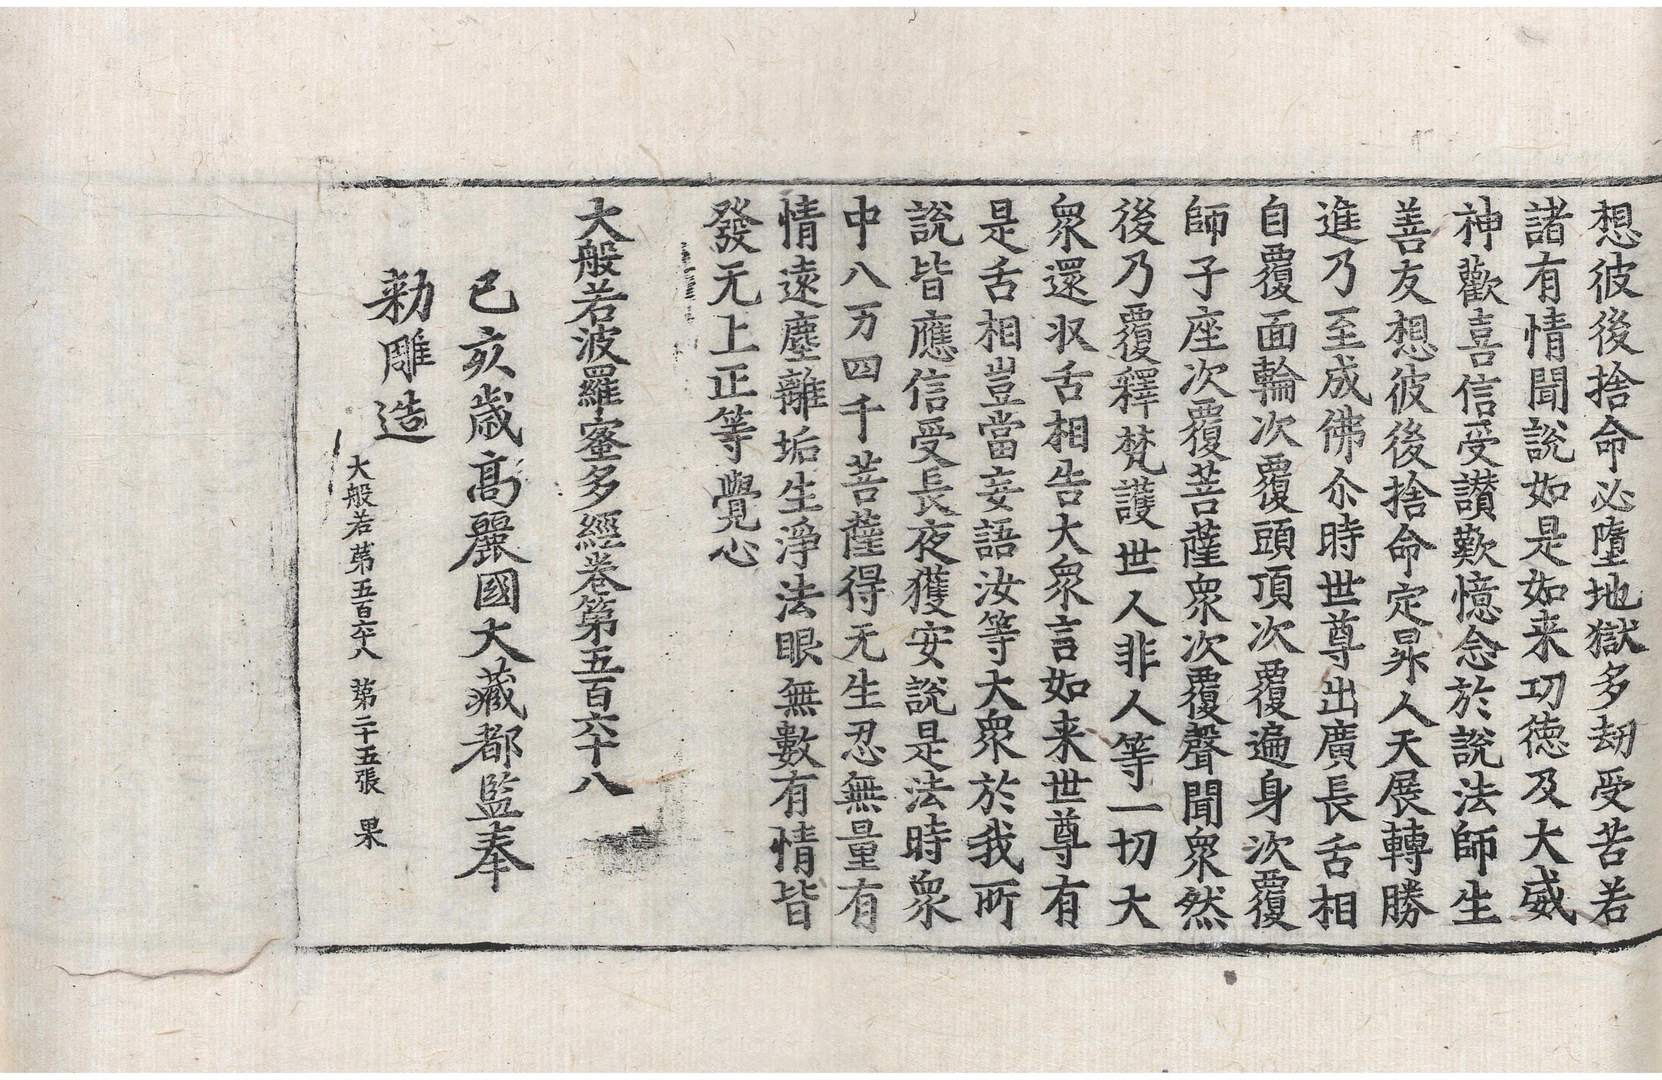 想彼後捨命必墮地獄多劫受苦若
諸有情聞說如是如来功徳及大威
神歡喜信受讃歎憶念於說法師生
善友想彼後捨命定昇人天展轉勝
進乃至成佛尒時世尊出廣長舌相
自覆面輪次覆頭頂次覆遍身次覆
師子座次覆菩薩衆次覆聲聞衆然
後乃覆釋梵護世人非人等一切大
衆還收舌相告大衆言如来世尊有
是舌相豈當妄語汝等大衆於我所
說皆應信受長夜獲安說是法時衆
中八万四千菩薩得无生忍無量有
情遠塵離垢生淨法眼無數有情皆
發无上正等覺心
大般若波羅蜜多經卷第五百六十八
己亥歲高麗國大藏都監奉
勑雕造
大般若 苐五百六十八 第二十五張 果